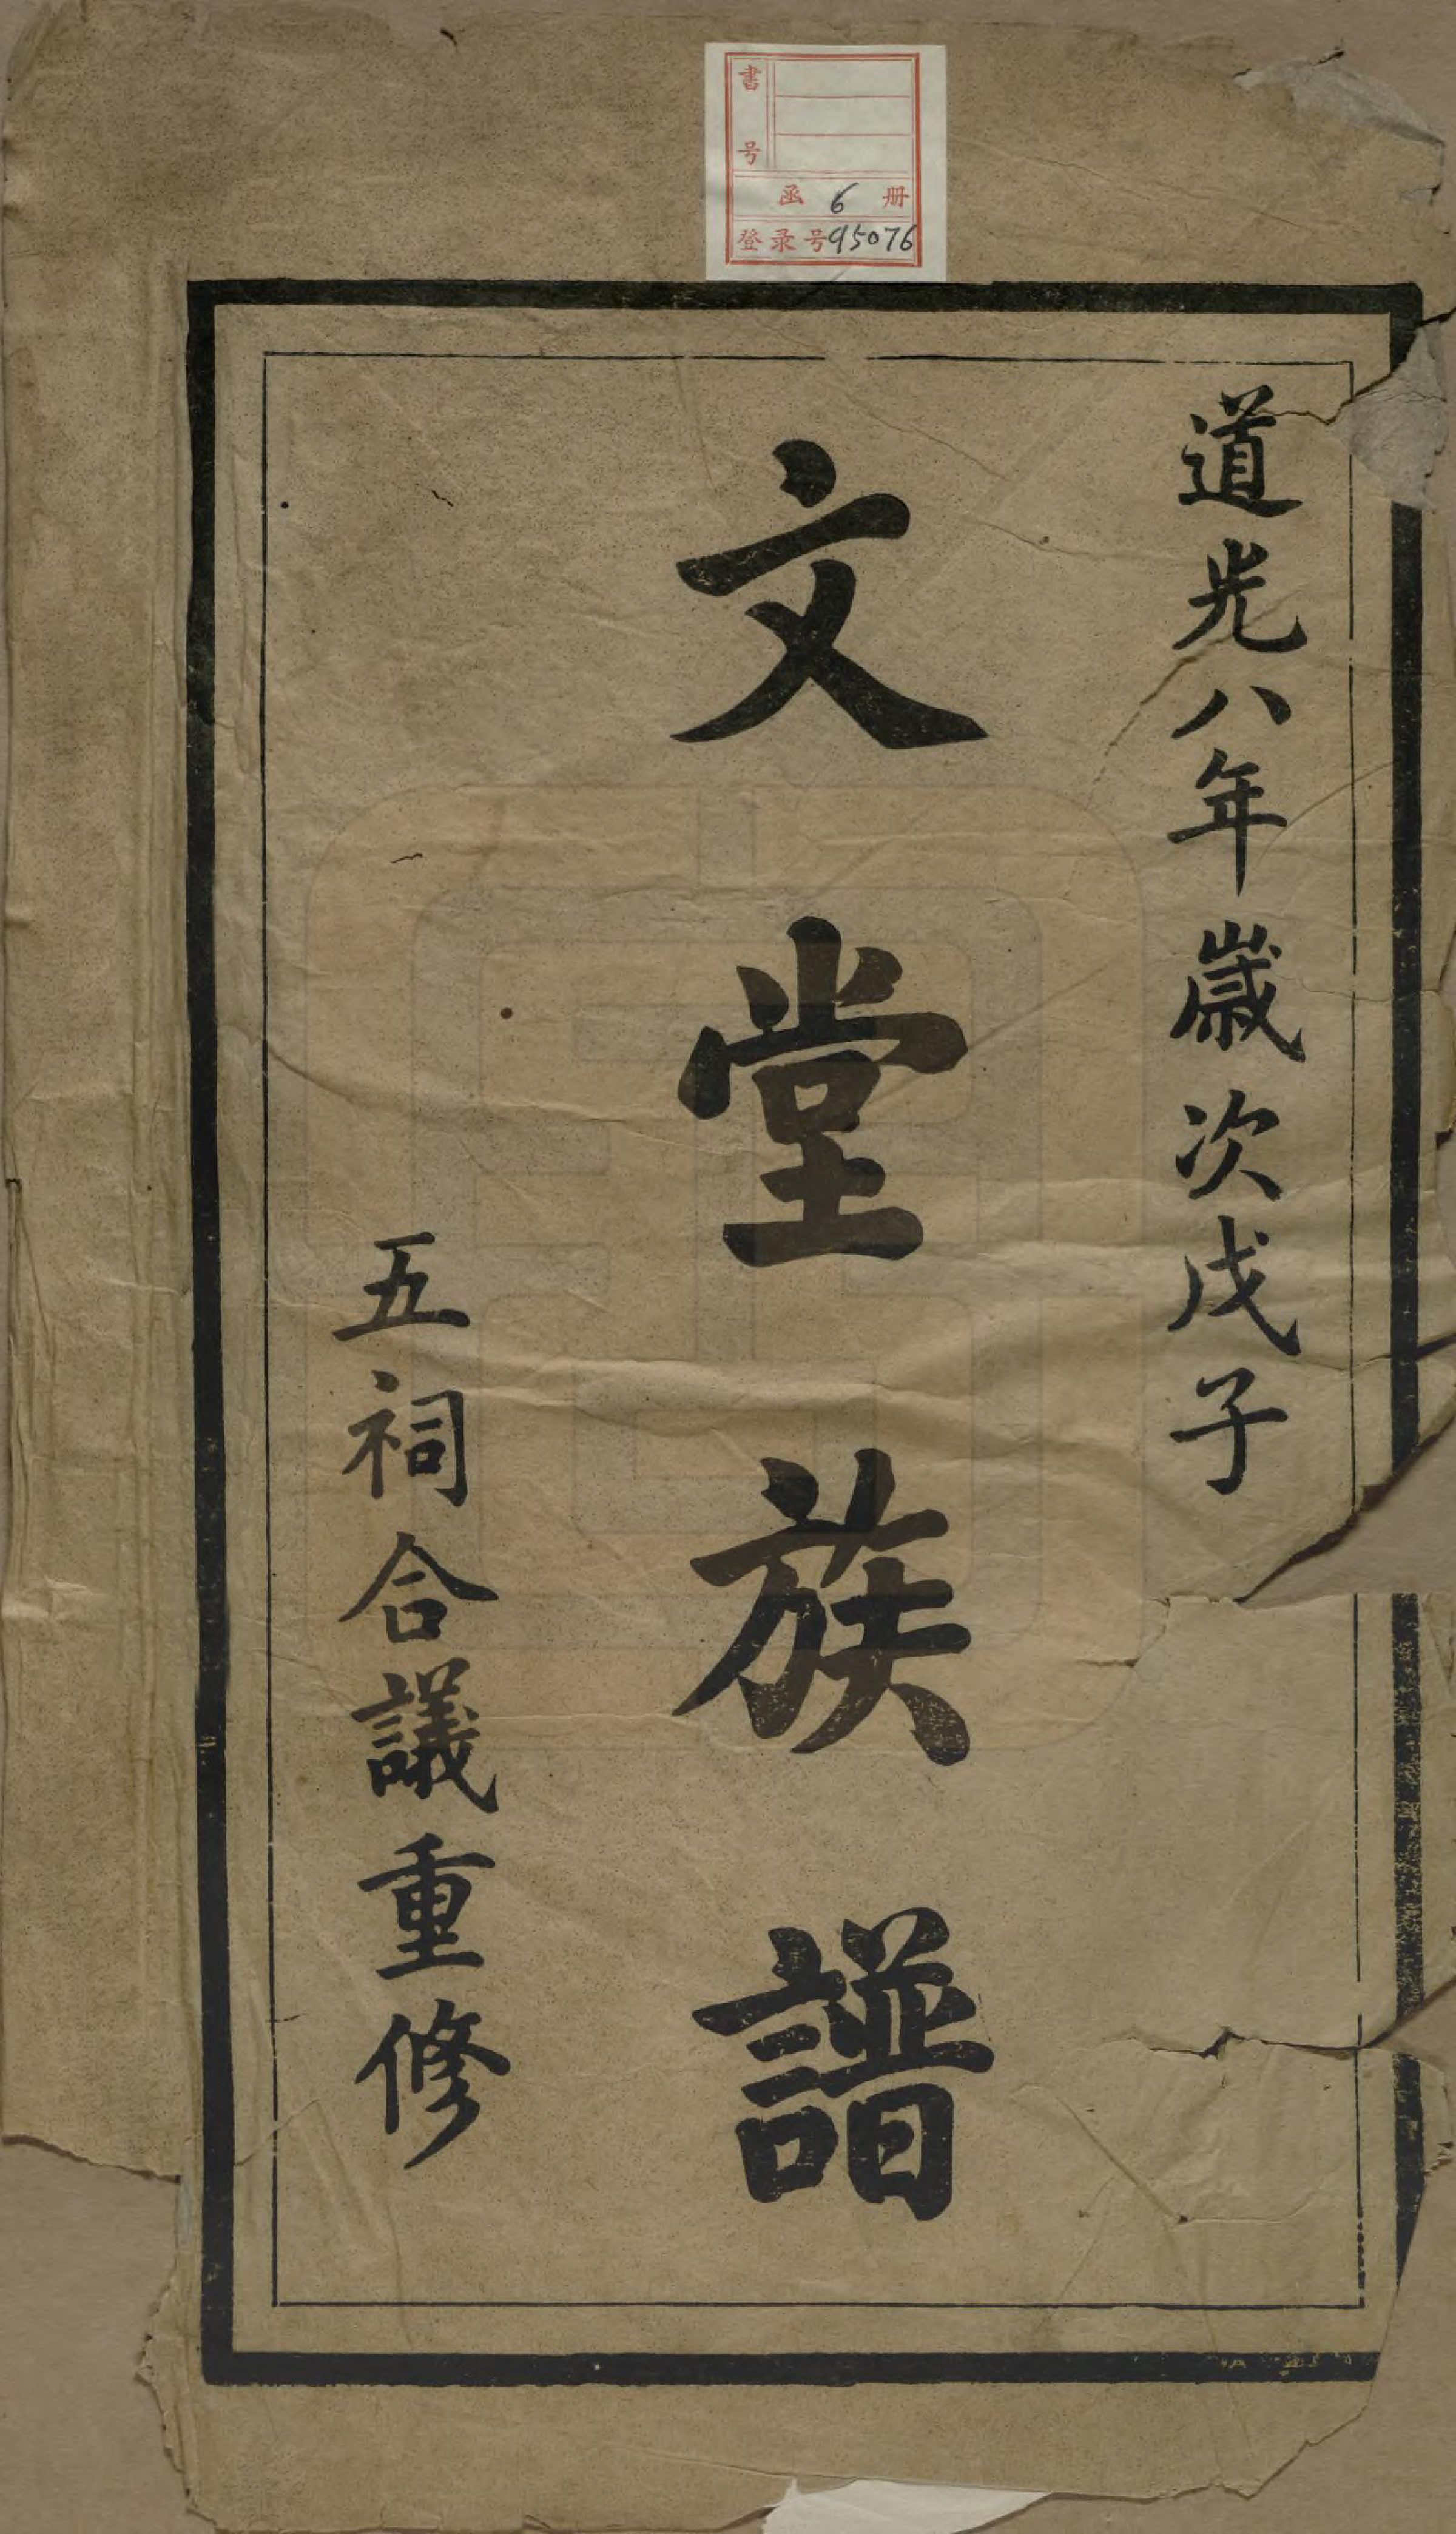 書号
函 6 册
登录号95076
道光八年歲次戊子
文堂族譜
五祠合議重修